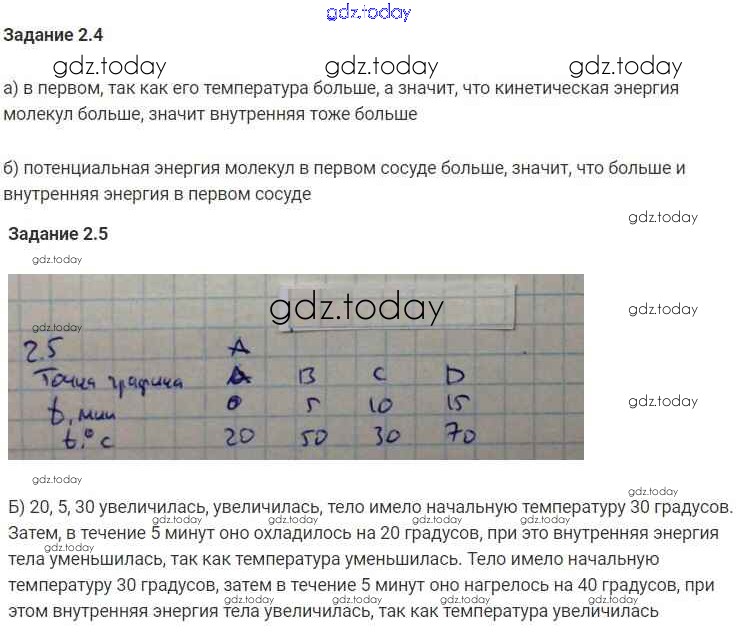 gdz.today
Задание 2.4
gdz.today gdz.today gdz.today
а) в первом, так как его температура больше, а значит, что кинетическая энергия
молекул больше, значит внутренняя тоже больше
б) потенциальная энергия молекул в первом сосуде больше, значит, что больше и
внутренняя энергия в первом сосуде
gdz.today
Задание 2.5
gdz.today
gdz.today
gdz.today
gdz.today
2.5 А
Точка графика А В С D
t, мин 0 5 10 15
gdz.today
t,°С 20 50 30 70
gdz.today
gdz.today
Б) 20, 5, 30 увеличилась, увеличилась, тело имело начальную температуру 30 градусов.
gdz.today gdz.today gdz.today gdz.today
Затем, в течение 5 минут оно охладилось на 20 градусов, при это внутренняя энергия
gdz.today
тела уменьшилась, так как температура уменьшилась. Тело имело начальную
температуру 30 градусов, затем в течение 5 минут оно нагрелось на 40 градусов, при
gdz.today gdz.today gdz.today gdz.today
этом внутренняя энергия тела увеличилась, так как температура увеличилась